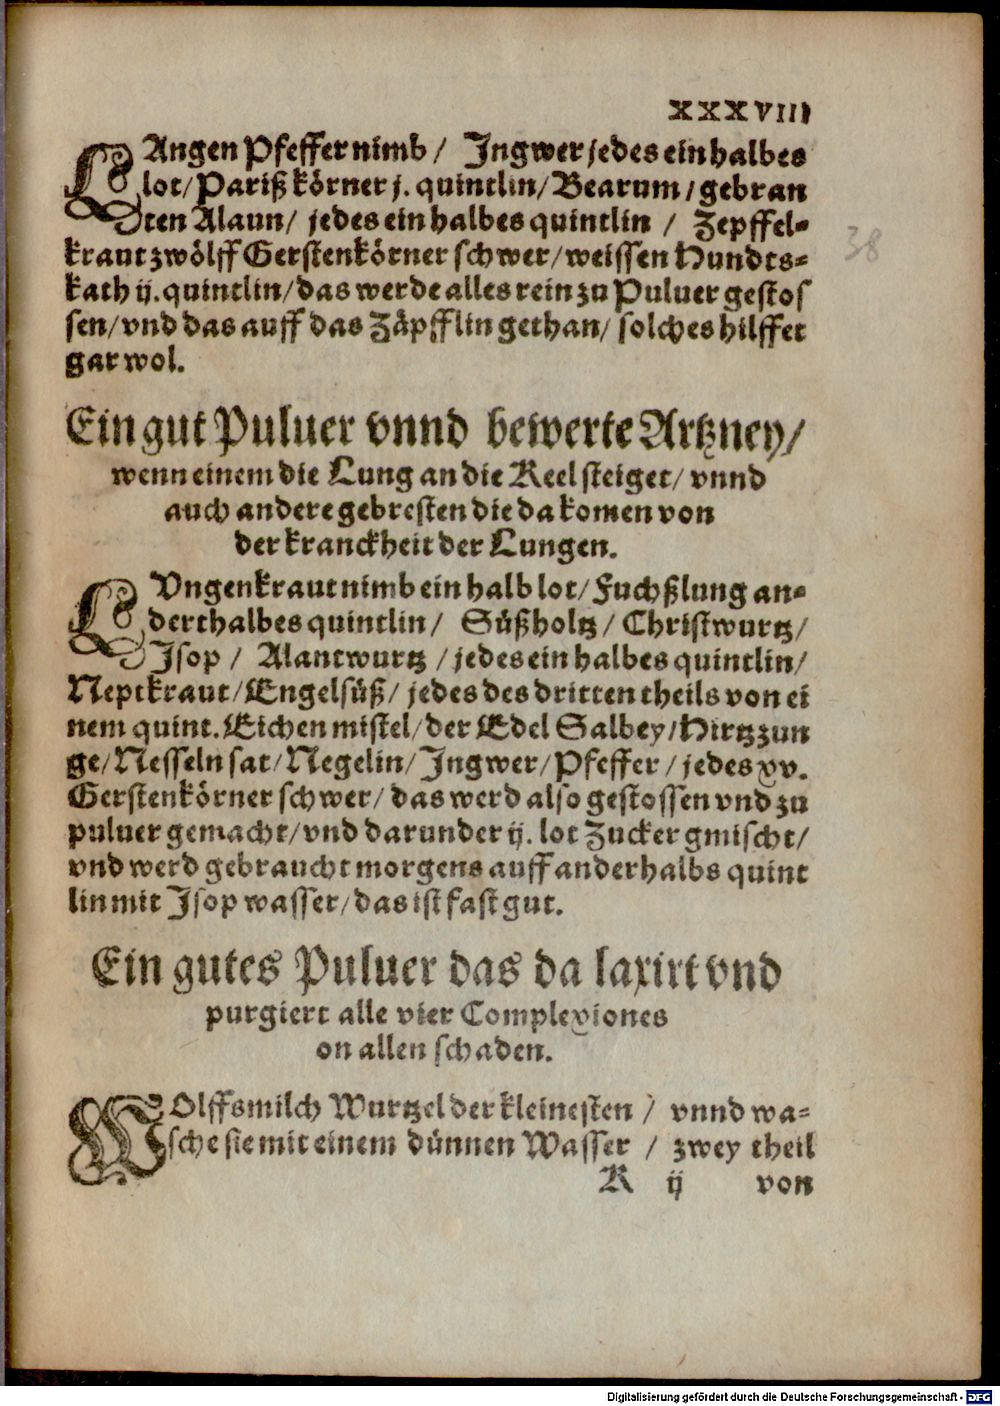 XXXVIII
LAngen Pfeffer nimb / Ingwer jedes ein halbes
lot/ Pariß körner j. quintlin/ Bearum / gebran
ten Alaun/ jedes ein halbes quintlin / Zepffel-
kraut zwölff Gerstenkörner schwer/ weissen Hundts-
kath ij. quintlin/ das werde alles rein zu Puluer gestos
sen/ vnd das auff das Zäpfflin gethan/ solches hilffet
gar wol.
38
Ein gut Puluer vnnd bewerte Artzney/
wenn einem die Lung an die Keel steiget/ vnnd
auch andere gebresten die da komen von
der kranckheit der Lungen.
LVngenkraut nimb ein halb lot/ Fuchßlung an-
derthalbes quintlin/ Süßholtz/ Christwurtz/
Isop / Alantwurtz / jedes ein halbes quintlin/
Neptkraut/ Engelsüß/ jedes des dritten theils von ei
nem quint. Eichen mistel/ der Edel Salbey/ Hirtzzun
ge/ Nesseln sat/ Negelin/ Ingwer/ Pfeffer / jedes xv.
Gerstenkörner schwer/ das werd also gestossen vnd zu
puluer gemacht/ vnd darunder ij. lot Zucker gmischt/
vnd werd gebraucht morgens auff anderhalbs quint
lin mit Isop wasser/ das ist fast gut.
Ein gutes Puluer das da laxirt vnd
purgiert alle vier Complexiones
on allen schaden.
WOlffsmilch Wurtzel der kleinesten / vnnd wa-
sche sie mit einem dünnen Wasser / zwey theil
K ij von
Digitalisierung gefördert durch die Deutsche Forschungsgemeinschaft - DFG